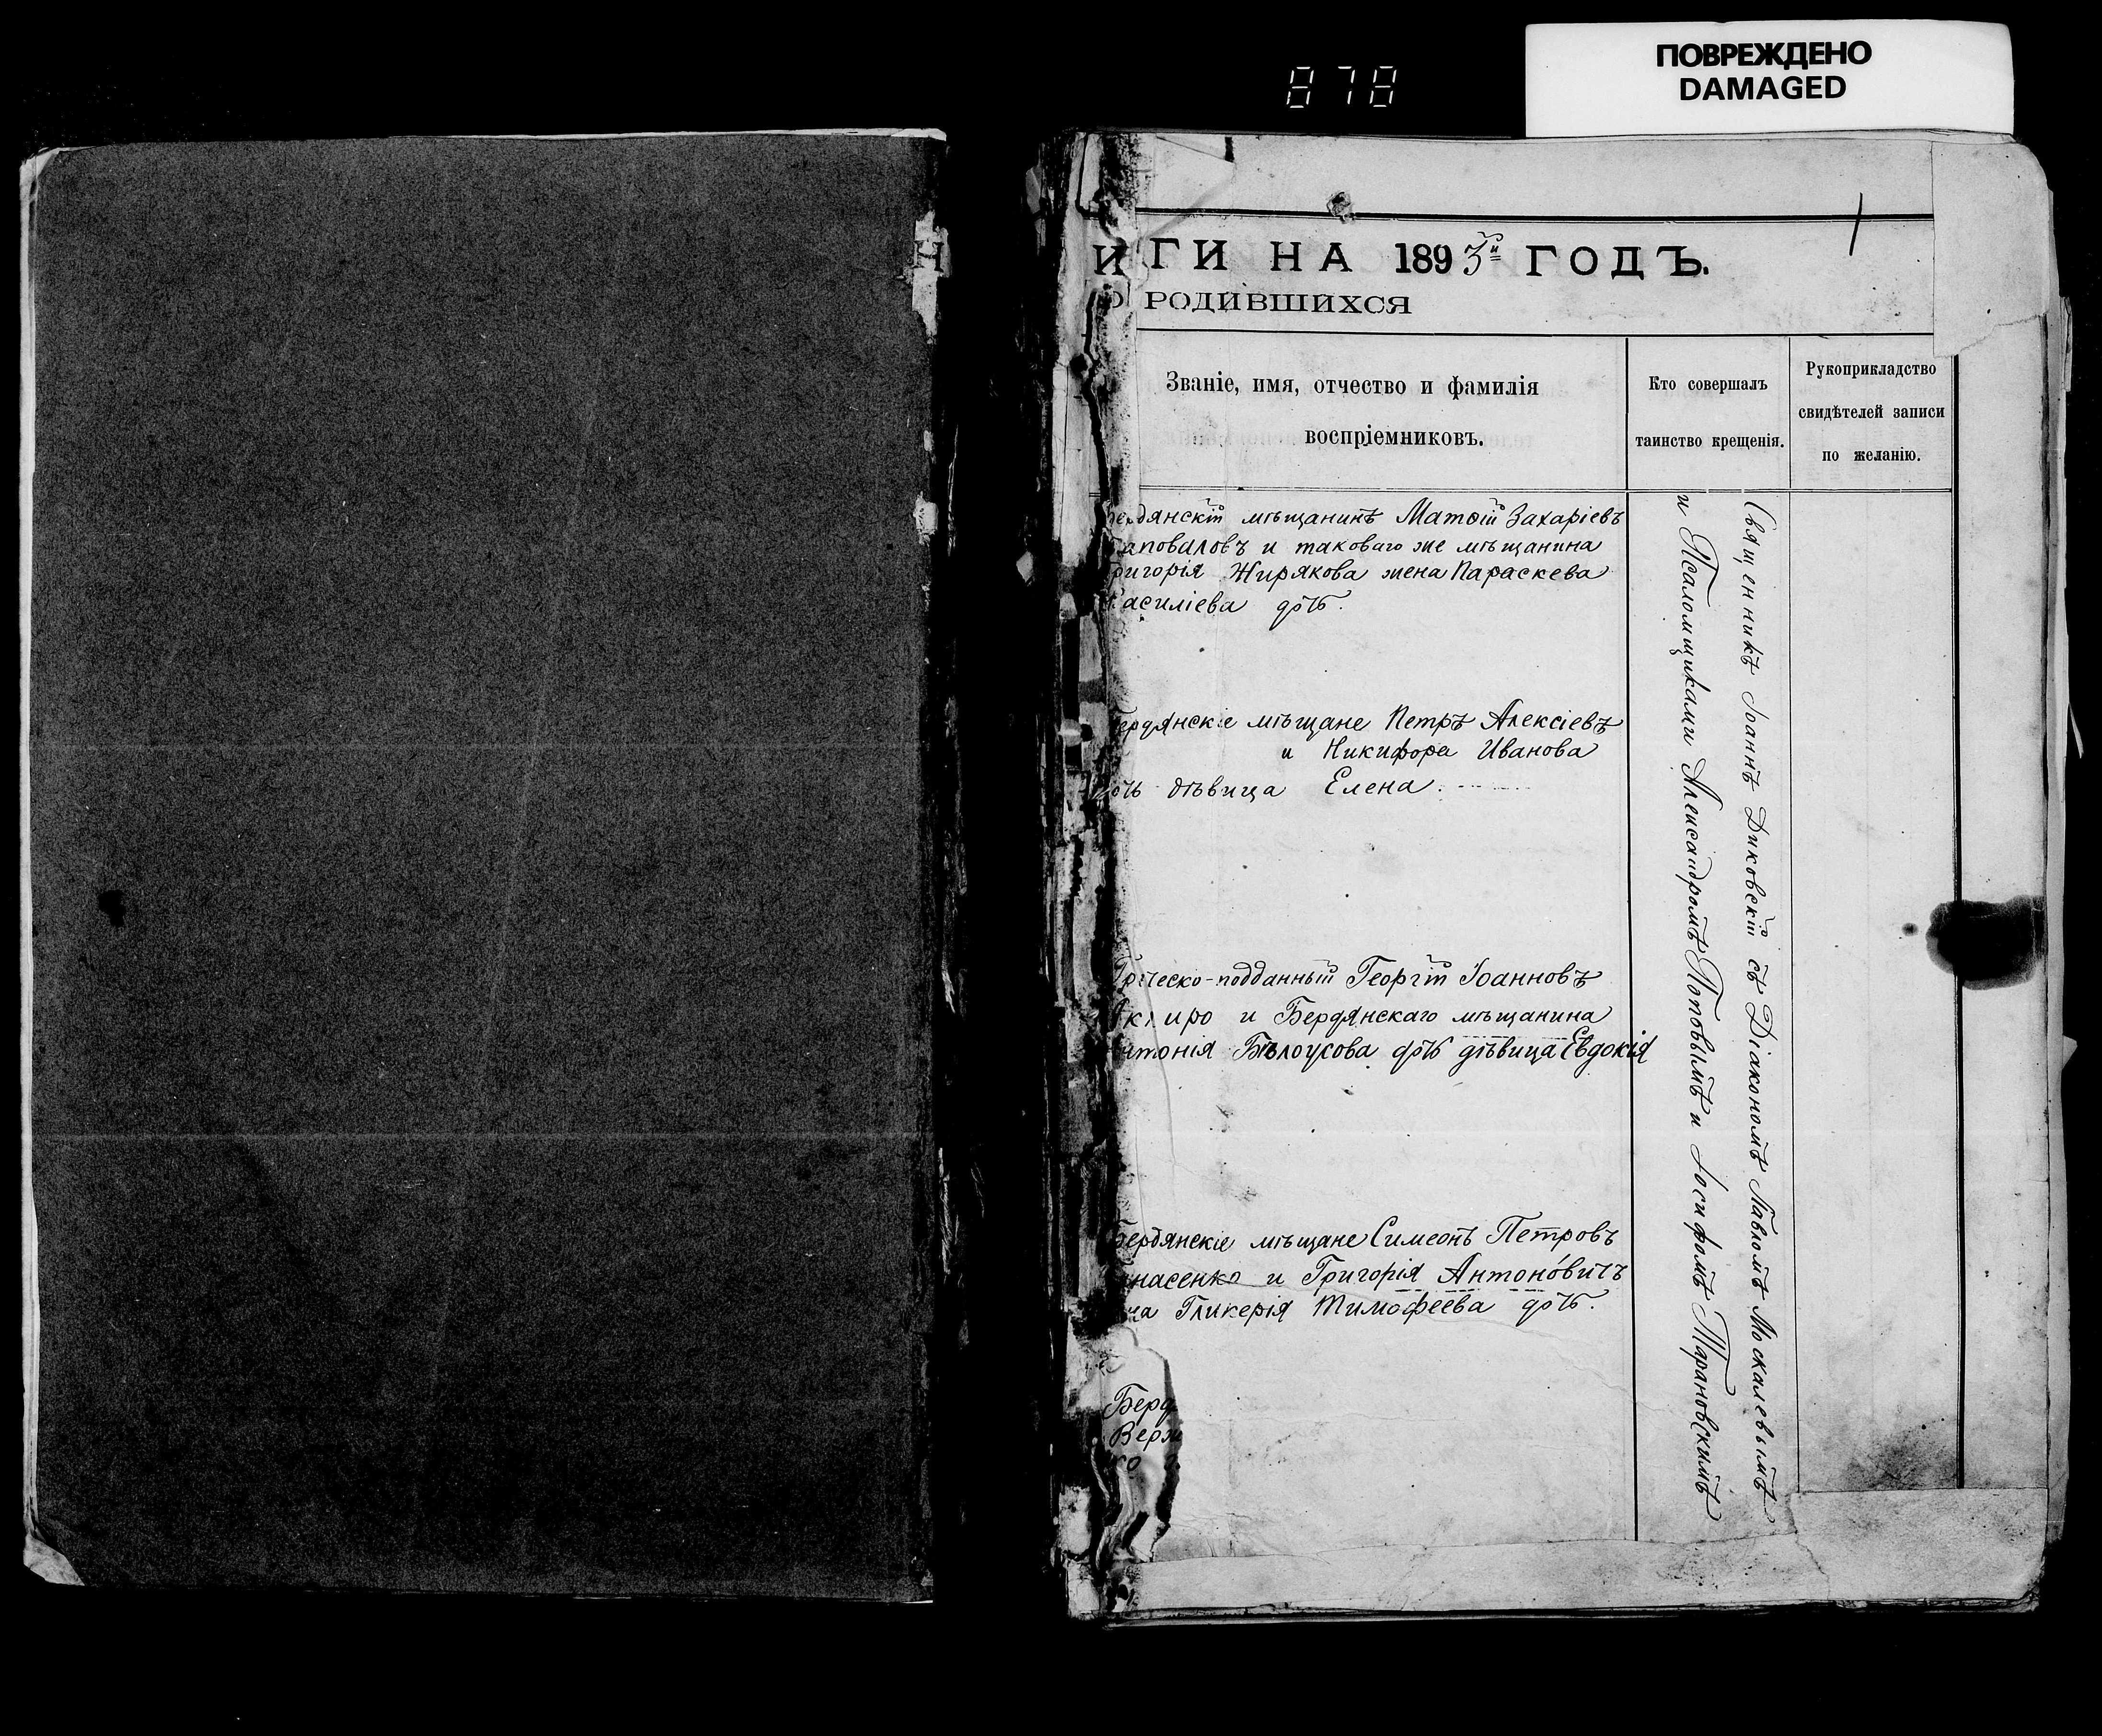 878
ПОВРЕЖДЕНО
DAMAGED
ИГИ НА 1893й ГОДЪ.
О РОДИВШИХСЯ
Званіе, имя, отчество и фамилія
воспріемниковъ.
Кто совершалъ
таинство крещенія.
Рукоприкладство
свидѣтелей записи
по желанію.
Бердянскій мѣщанинъ Матѳій Захаріевъ
аповаловъ и таковаго же мѣщанина
ригорія Жирякова жена Параскева
Василіева дочь.
Бердянскіе мѣщане Петръ Алексіевъ
и Никифора Иванова
дочь дѣвица Елена.
Греческо-подданный Георгій Іоанновъ
и Бердянскаго мѣщанина
Антонія Бѣлоусова дочь дѣвица Евдокія
Бердянскіе мѣщане Симеонъ Петровъ
насенко и Григорія Антоновичъ
на Гликерія Тимофеева дочь.
Берд
Верж
ко
Священникъ Іоаннъ Диковскій съ Діакономъ Павломъ Москалевымъ
и Псаломщиками Александромъ Поповымъ и Іосифомъ Тарановскимъ